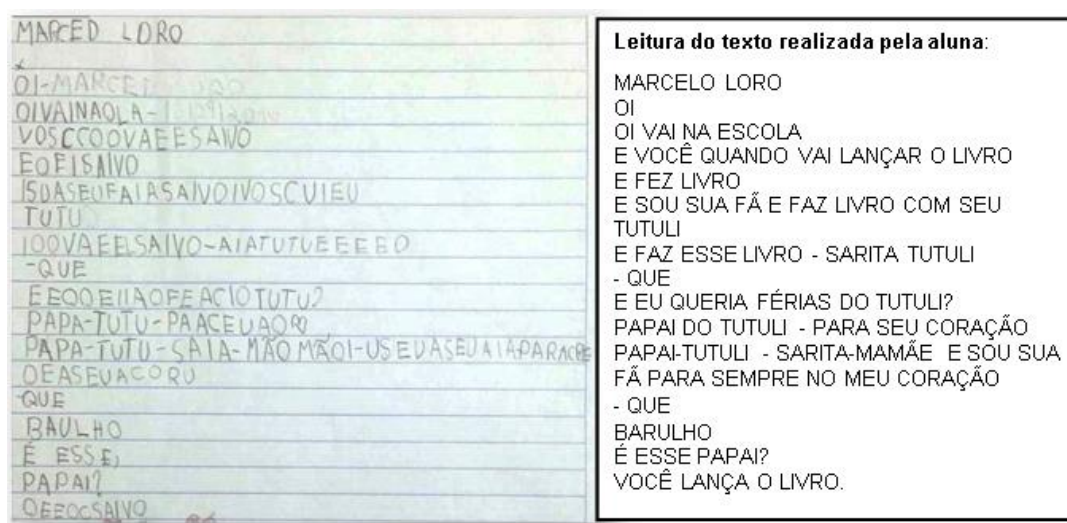 MARCED LORO
OI-MARCE
OIVAINAOLA-
VOSCCOOVAEESAIVO
EOFISAIVO
ISUASEUFAIASAIVOIVOSCUIEU
TUTU
IOOVAEELSAIVO-AIATUTUEEEEO
-QUE
EEOOEIIAOFEACIOTUTU?
PAPA-TUTU-PAACEUAO
PAPA-TUTU-SAIA-MÃOMÃOI-USEUASEUAIAPARACRE
OEASEUACORU
-QUE
BAULHO
É ESSE,
PAPAI?
OEEOCSAIVO
Leitura do texto realizada pela aluna:
MARCELO LORO
OI
OI VAI NA ESCOLA
E VOCÊ QUANDO VAI LANÇAR O LIVRO
E FEZ LIVRO
E SOU SUA FÃ E FAZ LIVRO COM SEU
TUTULI
E FAZ ESSE LIVRO - SARITA TUTULI
- QUE
E EU QUERIA FÉRIAS DO TUTULI?
PAPAI DO TUTULI - PARA SEU CORAÇÃO
PAPAI-TUTULI - SARITA-MAMÃE E SOU SUA
FÃ PARA SEMPRE NO MEU CORAÇÃO
- QUE
BARULHO
É ESSE PAPAI?
VOCÊ LANÇA O LIVRO.